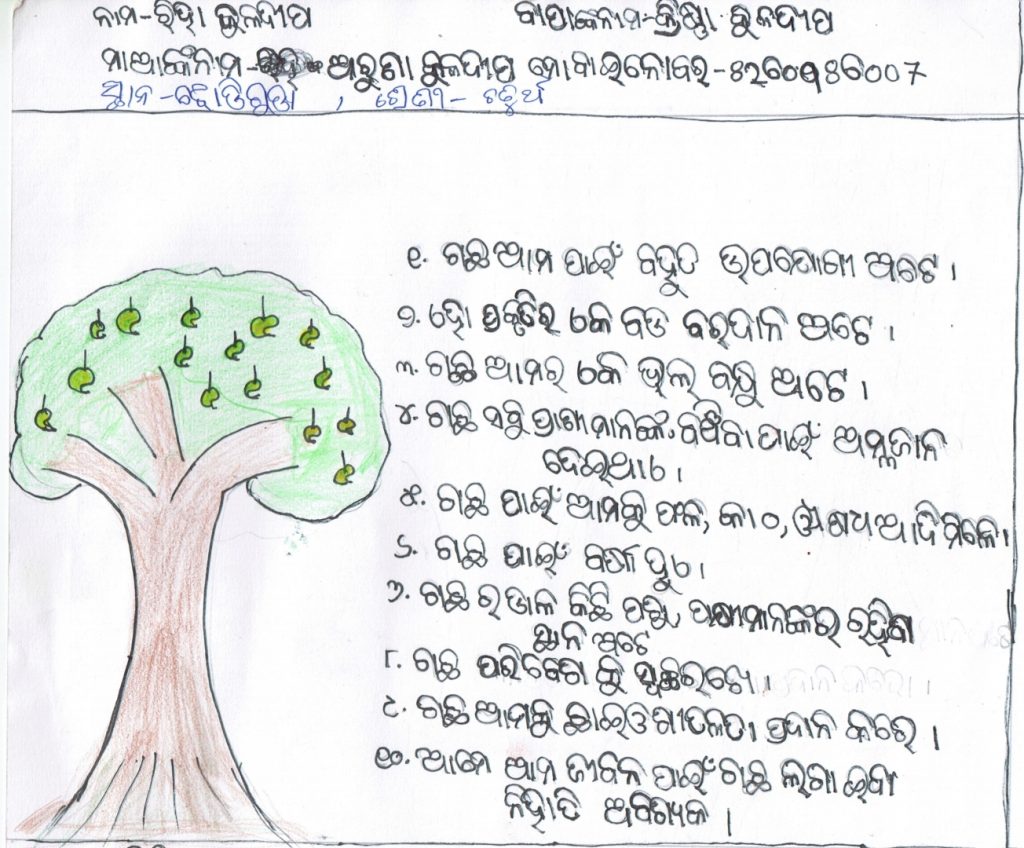 ନାମ-ରିହା କୁଳଦୀପ ବାପାଙ୍କନାମ-କ୍ରିଷ୍ଣା କୁଳଦୀପ
ମାଆଙ୍କନାମ- ଅରୁଣା କୁଳଦୀପ ମୋବାଇଲନୋବର-
ସ୍ଥାନ-ଝୋଡିଗୁଡା , ଶ୍ରେଣୀ- ଚତୁର୍ଥ
୧. ଗଛ ଆମ ପାଇଁ ବହୁତ ଉପଯୋଗୀ ଅଟେ ।
୨. ହୋ ପ୍ରକୃତିର କେ ବଡ ବରଦାନ ଅଟେ ।
୩. ଗଛ ଆମର କେ ଭଲ୍ ବନ୍ଧୁ ଅଟେ ।
୪. ଗଛ ସବୁ ପ୍ରାଣୀମାନଙ୍କ ବଞ୍ଚିବା ପାଇଁ ଅମ୍ଳଜାନ
ଦେଇଥାଏ ।
୫. ଗଛ ପାଇଁ ଆମକୁ ଫଳ, କାଠ, ଔଷଧ ଆଦି ମିଳେ ।
୬. ଗଛ ପାଇଁ ବର୍ଷା ହୁଏ ।
୭. ଗଛ ର ଡାଳ କିଛି ପଶୁ ପକ୍ଷୀମାନଙ୍କର ରହିବା
ସ୍ଥାନ ଅଟେ
୮. ଗଛ ପରିବେଶ କୁ ସ୍ୱଚ୍ଛ ରଖେ ।
୯. ଗଛ ଆମକୁ ଛାଇ ଓ ଶୀତଳତା ପ୍ରଦାନ କରେ ।
୧୦. ଆମେ ଆମ ଜୀବନ ପାଇଁ ଗଛ ଲଗା ଇବା
ନିହାତି ଅବଶ୍ୟକ ।